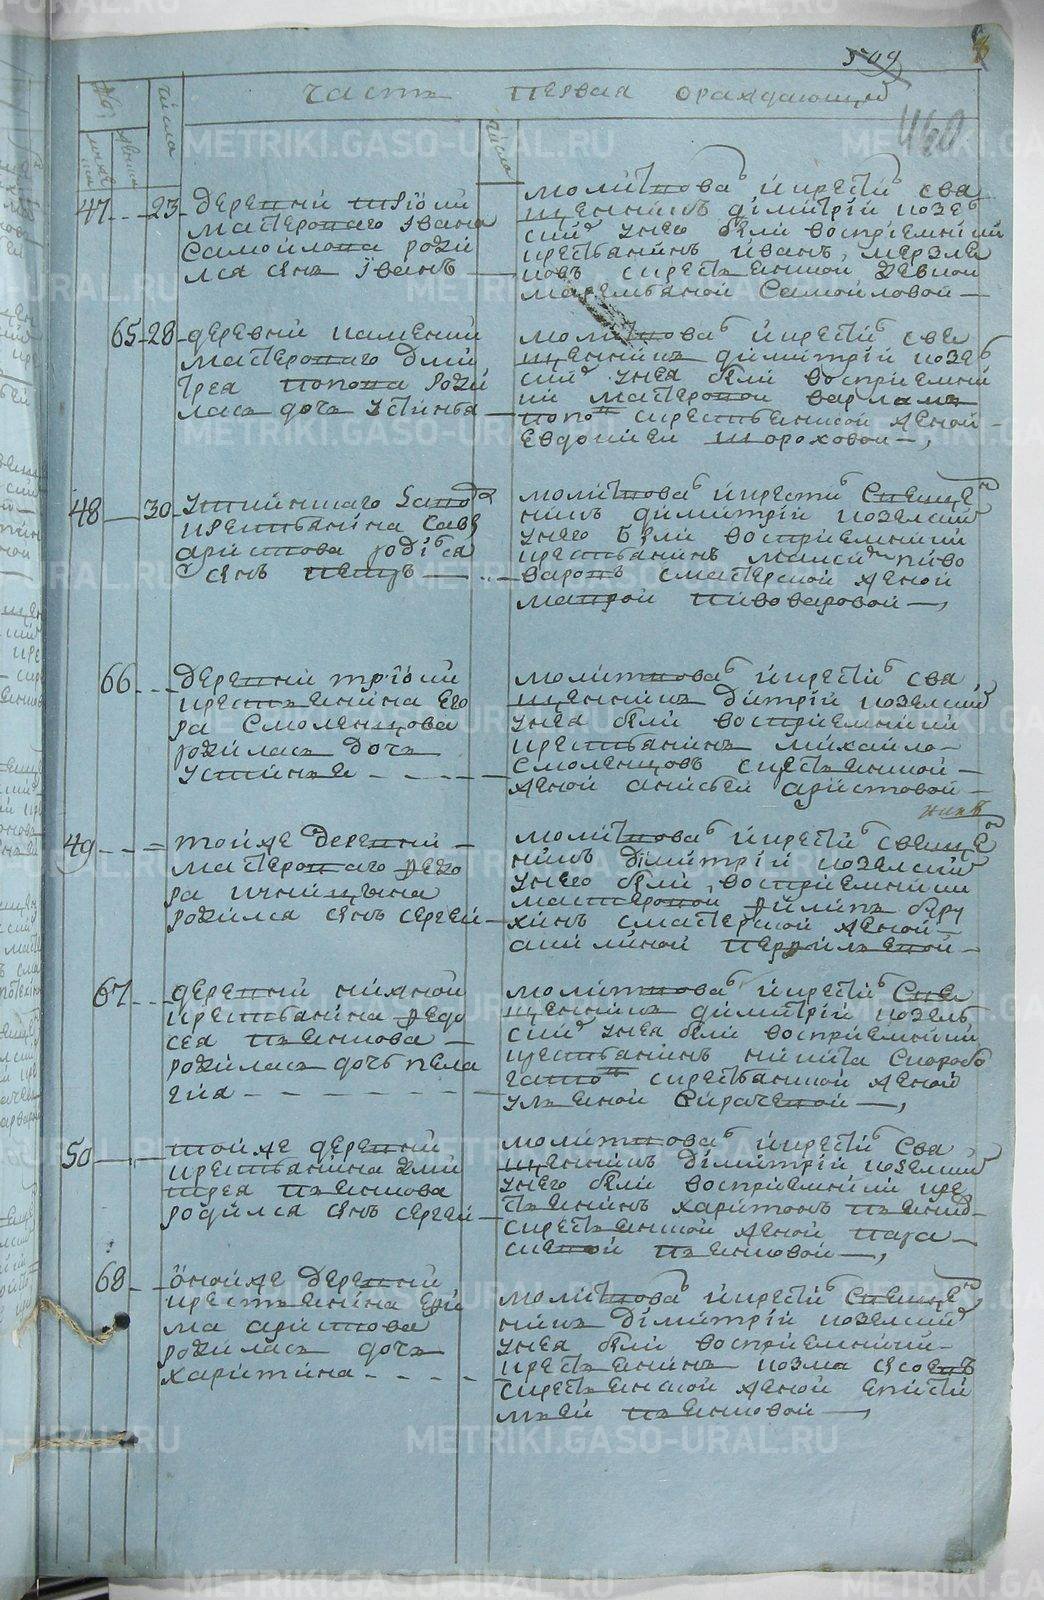 509
460
часть первая ораждающи
числа
числа
47 23 деревни трїѡни
мастероваго Ивана
Самойлова роди
лся сынъ Iванъ
молитвова и крести свя
щенникъ димитрїй козел
ский у него были восприемники
крестьянинъ иванъ мерзля
ковъ с крестьянской девкой
маремьяной Самойловой
65 28 деревни каменки
мастероваго дми
трея попова роди
лась дочь устинья
молитвова и крести свя
щенникъ димитрїй козел
ский у нея были восприемни
ки мастеровой варламъ
попо с крестьянской женой
евдокией шороховой
48 30 крестьянина Савы
аристова родился
сынъ петръ
молитвова и крести Священ
никъ димитрїй козелский
у него были восприемники
крестьянинъ максимъ пиво
варовъ с мастерской женой
маврой пивоваровой
66 деревни трїѡни
крестьянина Его
ра Смоленцова
родилась дочь
устинья
молитвова и крести свя
щенникъ дмитрїй козелский
у нея были восприемники
крестьянинъ михайло
Смоленцовъ с крестьянской
женой анисьей аристовой
49 той же деревни
мастероваго федо
ра
родился сынъ сергей
молитвова и крести священ
никъ дїмитрїй козелский
у него были восприемники
мастеровой филипъ беру
хинъ с мастерской женой
акилиной перфильевой
67 деревни нижной
крестьянина федо
сея пьянкова
родилась дочь пела
гия
молитвова и крести свя
щенникъ димитрїй козель
ский у нея были восприемники
крестьянинъ никита скоробо
гато с крестьянской женой
ульяной Сырачевой
50 той же деревни
крестьянина дми
трея пьянкова
родился сынъ сергей
молитвова и крести свя
щенникъ дїмитрїй козелский
у него были восприемники кре
стьянинъ харитонъ пьянко
с крестьянской женой пара
сковой пьянковой
68 оной же деревни
крестьянина Ефи
ма аристова
родилась дочь
харитина
молитвова и крести Священ
никъ дїмитрїй козелский
у нея были восприемники
крестьянинъ козма
с крестьянской женой еписти
мьей пьянковой